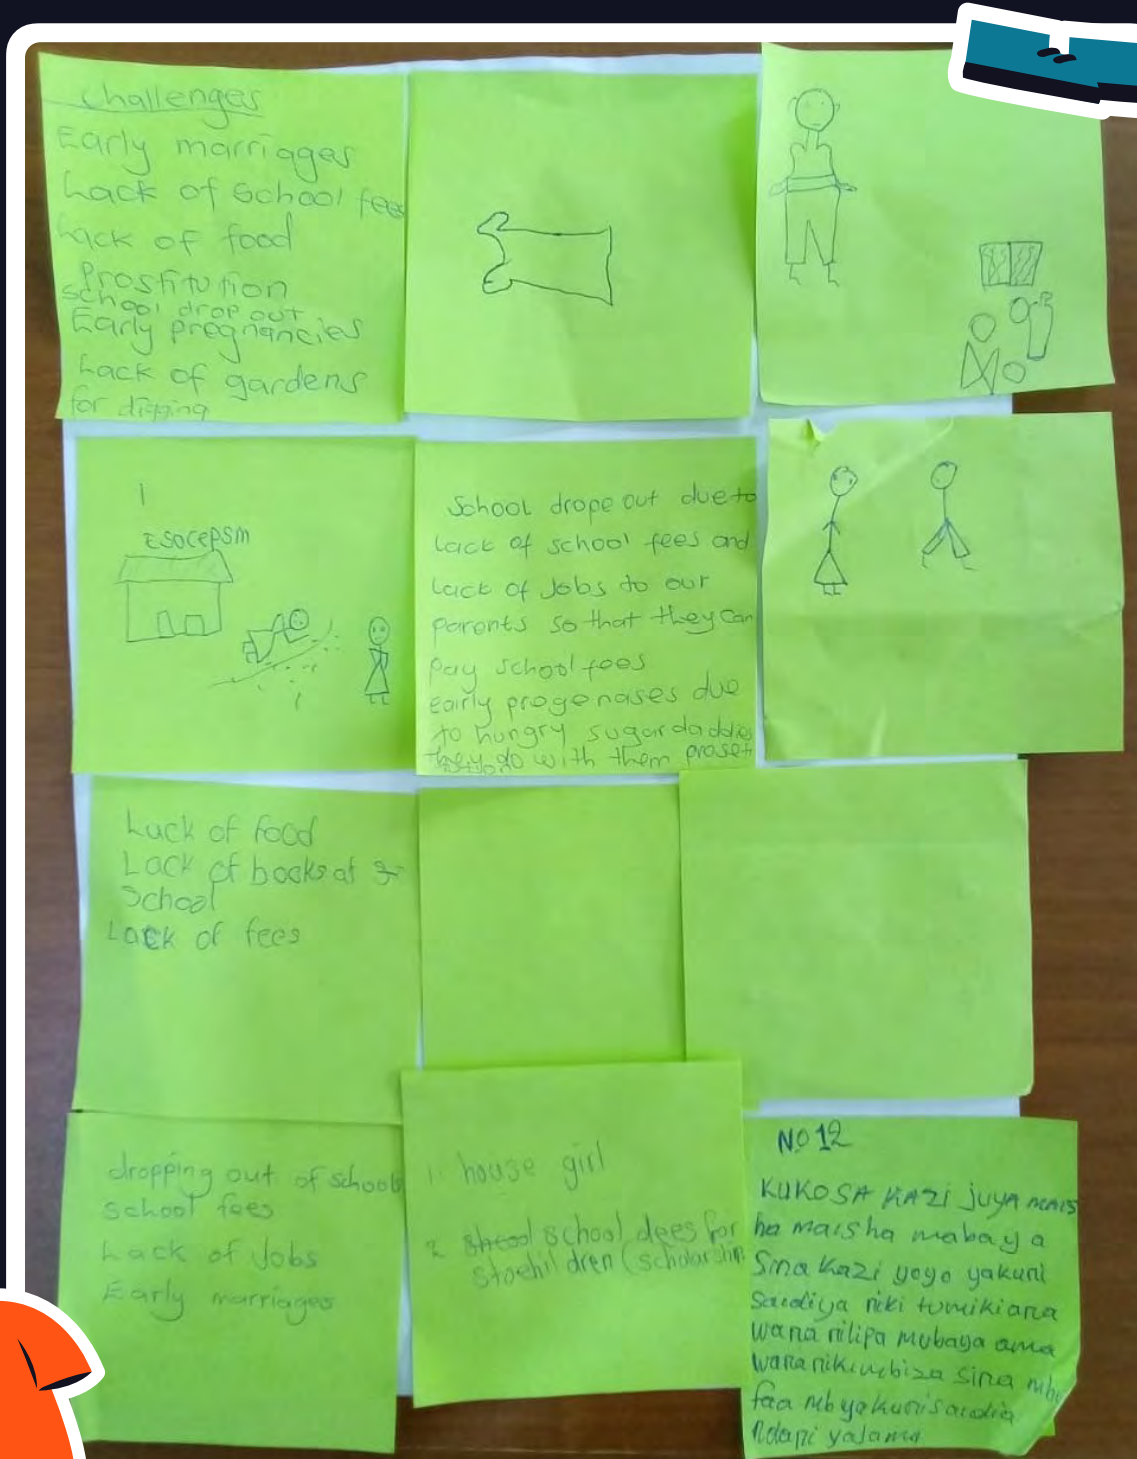 Challenges
Early marriages
Lack of School fees
Lack of food
Prostitution
school drop out
Early pregnancies
Lack of gardens
for digging
ESOCEPSM
School drope out due to
Lack of school fees and
Lack of Jobs to our
parents so that they can
pay school fees
early progenases due
to hungry sugar daddies
they go with them proset
Luck of food
Lack of books at
School
Lack of fees
dropping out of school
school fees
Lack of Jobs
Early marriages
1. house girl
2 school dees for
(scholarship
NO 12
KUKOSA KAZI JUYA MAIS
ha maisha mabaya
Sina Kazi yoyo yakuni
Saidiya niki tumikiana
wana nilipa mubaya ama
wana nikimbiza sina
faa